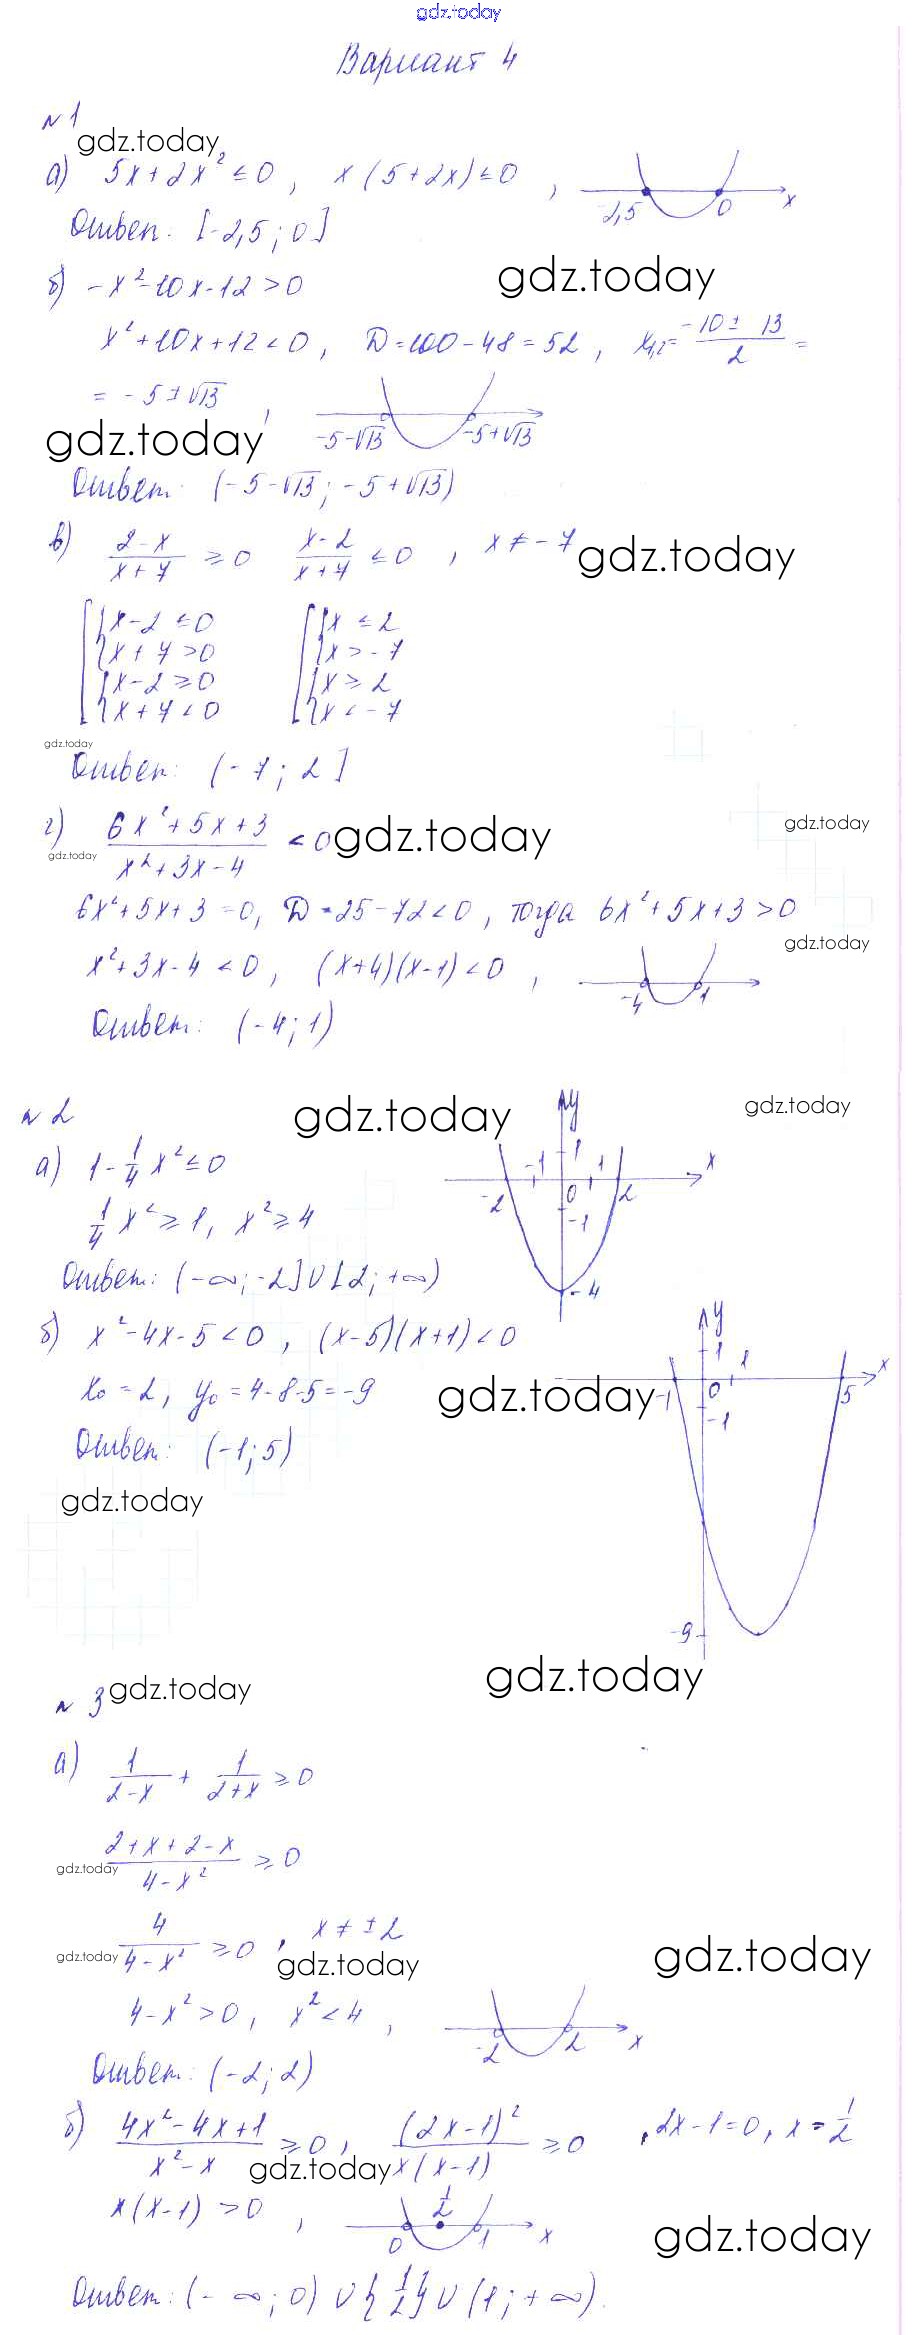 gdz.today
Вариант 4
№1
gdz.today
а) 5x+2x² ≤ 0, x(5+2x) ≤ 0,
-2,5 0 x
Ответ: [-2,5; 0]
б) -x²-10x-12 > 0
gdz.today
x²+10x+12 < 0, D=100-48=52, x₁,₂= (-10± 13)/2 =
= -5±√13,
-5-√13 -5+√13
gdz.today
Ответ: (-5-√13; -5+√13)
в) (2-x)/(x+7) ≥ 0 (x-2)/(x+7) ≤ 0, x ≠ -7
gdz.today
[ { x-2 ≤ 0 [ { x ≤ 2
{ x+7 > 0 { x > -7
{ x-2 ≥ 0 { x ≥ 2
{ x+7 < 0 { x < -7
gdz.today
Ответ: (-7; 2]
г) (6x²+5x+3)/(x²+3x-4) < 0
gdz.today
gdz.today
gdz.today
6x²+5x+3=0, D=25-72<0, тогда 6x²+5x+3>0
gdz.today
x²+3x-4 < 0, (x+4)(x-1) < 0,
-4 1
Ответ: (-4; 1)
№2
gdz.today
gdz.today
а) 1-1/4 x² ≤ 0
y
x
-2 -1 0 1 2
1
-1
-4
1/4 x² ≥ 1, x² ≥ 4
Ответ: (-∞; -2]∪[2; +∞)
б) x²-4x-5 < 0, (x-5)(x+1) < 0
y
x
-1 0 1 5
1
-1
-9
x₀=2, y₀=4-8-5=-9
gdz.today
Ответ: (-1; 5)
gdz.today
gdz.today
№3
gdz.today
а) 1/(2-x) + 1/(2+x) ≥ 0
(2+x+2-x)/(4-x²) ≥ 0
gdz.today
4/(4-x²) ≥ 0, x ≠ ±2
gdz.today
gdz.today
gdz.today
4-x² > 0, x² < 4,
-2 2 x
Ответ: (-2; 2)
б) (4x²-4x+1)/(x²-x) ≥ 0, (2x-1)²/(x(x-1)) ≥ 0, 2x-1=0, x=1/2
gdz.today
x(x-1) > 0,
0 1/2 1 x
gdz.today
Ответ: (-∞; 0)∪{1/2}∪(1; +∞).